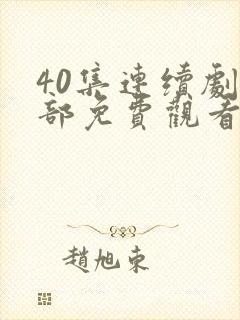 40集連續劇
部免費觀看
趙旭東